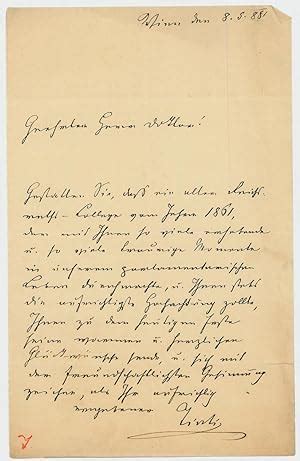 Wien den 8. 5. 88
Geehrter Herr Doktor!
Gestatten Sie, daß ein alter Reichs-
raths-College vom Jahre 1861,
der mit Ihnen so viele erhebende
u. so viele traurige Momente
in unserem parlamentarischen
Leben durchmachte, u. Ihnen stets
die aufrichtigste Hochachtung zollte,
Ihnen zu dem heutigen Feste
seine warmen u. herzlichen
Glückwünsche sende, u. sich mit
der freundschaftlichsten Gesinnung
zeichne, als Ihr aufrichtig
ergebener
Tinti